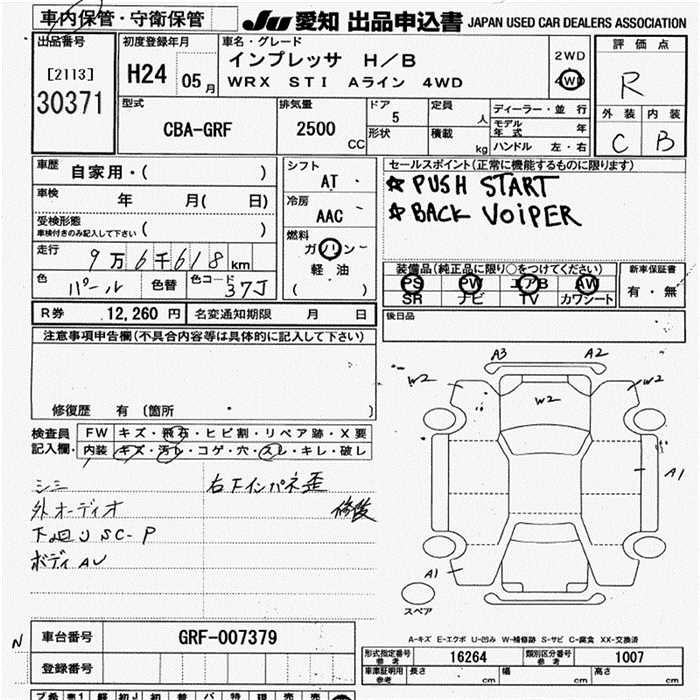 車内保管・守衛保管
JU 愛知 出品申込書 JAPAN USED CAR DEALERS ASSOCIATION
出品番号
[2113]
30371
初度登録年月
H24 05月
車名・グレード
インプレッサ H/B
WRX STI Aライン 4WD
2WD
4WD
評価点
R
外装 内装
C B
型式
CBA-GRF
排気量
2500
CC
ドア
5
形状
定員
人
積載
kg
ディーラー・並行
モデル年式 年
ハンドル 左・右
車歴 自家用・( )
車検 年 月( 日)
受検形態
車検付きのみ記入して下さい ( )
走行 9万6千618km
色 パール 色替 色コード 37J
シフト
AT
冷房
AAC
燃料
ガソリン
軽油
( )
セールスポイント(正常に機能するものに限ります)
☆ PUSH START
☆ BACK VOIPER
装備品(純正品に限り○をつけてください)
PS PW エアB AW
SR ナビ TV カワシート
新車保証書
有・無
R券 12,260円 名変通知期限 月 日
後日品
注意事項申告欄(不具合内容等は具体的に記入して下さい)
修復歴 有(箇所 )
検査員記入欄
FW キズ・飛石・ヒビ割・リペア跡・X要
内装 キズ・汚レ・コゲ・穴・スレ・キレ・破レ
シミ
外オーディオ
下廻り SC-P
ボディ AU
右下インパネ歪
修後
A3 A2
W2 W2
W2
A1
A1
スペア
N
車台番号 GRF-007379
登録番号
A-キズ E-エクボ U-凹み W-補修跡 S-サビ C-腐食 XX-交換済
形式指定番号 参考 16264 類別区分番号 参考 1007
車庫証明用 参考 長さ cm 幅 cm 高さ cm